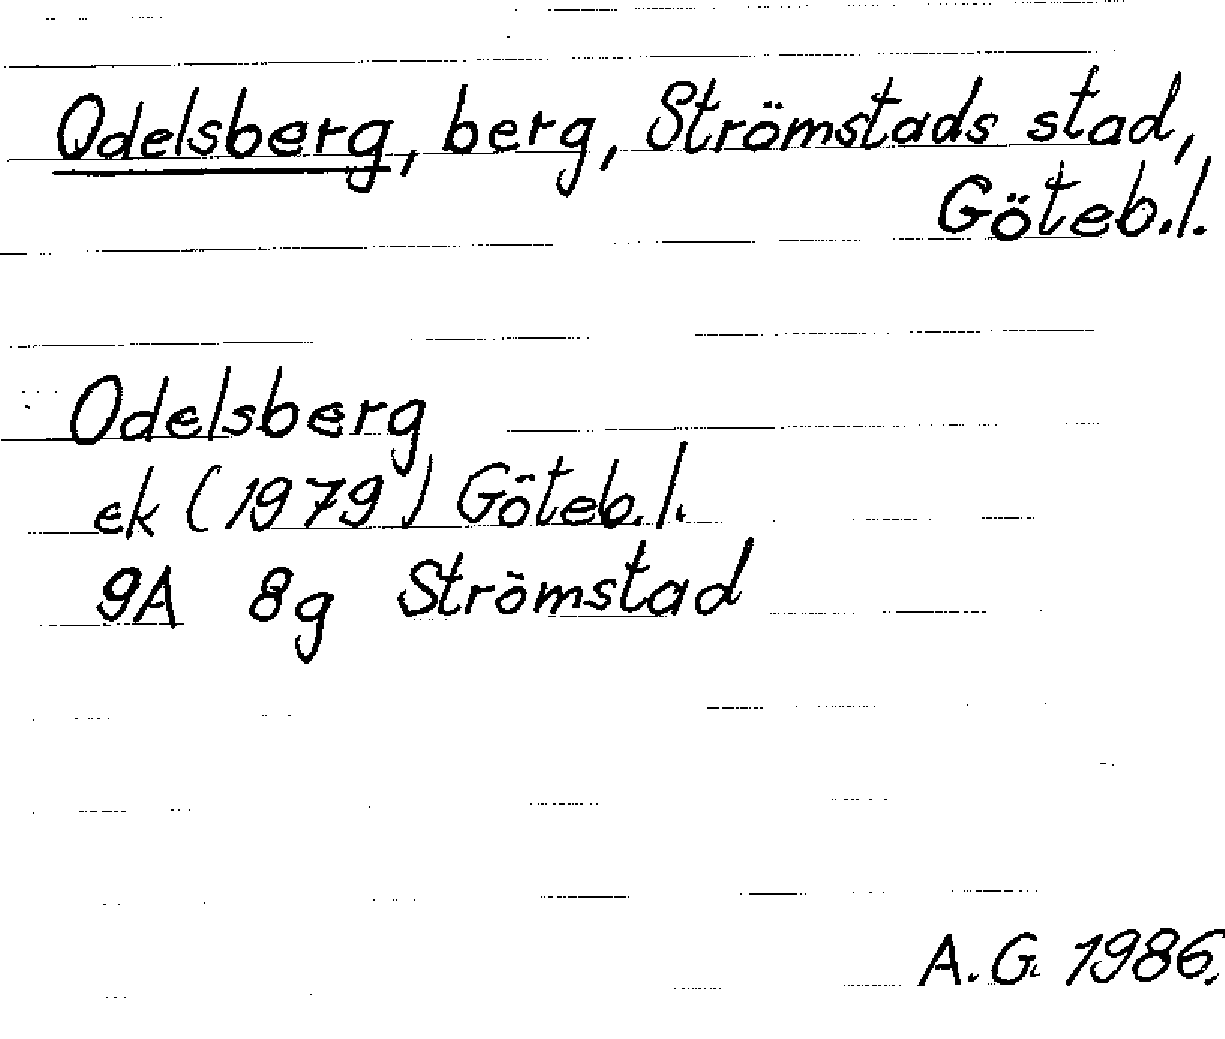 Odelsberg, berg, Strömstads stad,
Göteb.l.
Odelsberg
ek (1979) Göteb.l.
9A 8g Strömstad
A.G. 1986.